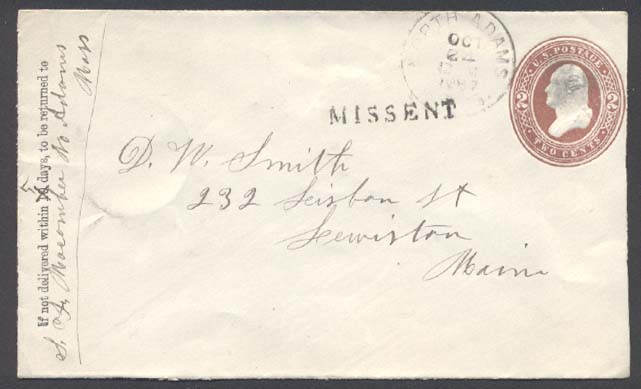 If not delivered within 10 days, to be returned to
5
S. A. Macomber No Adams
Mass
NORTH ADAMS
OCT
21
MISSENT
U.S. POSTAGE
2 2
TWO CENTS
D. W. Smith
232 Lisbon St
Lewiston
Maine